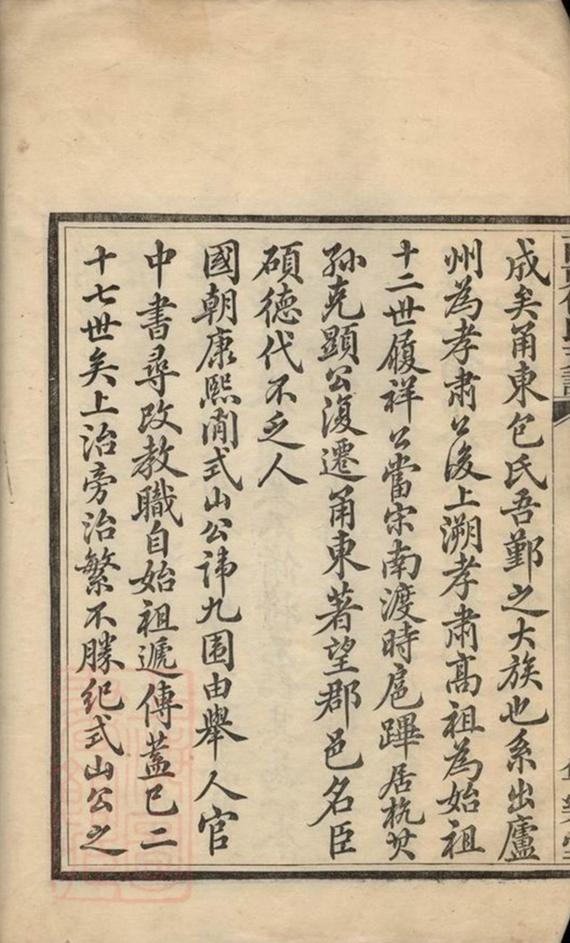 成矣甬東包氏吾鄞之大族也系出廬
州為孝肅公後上溯孝肅高祖為始祖
十二世履祥公當宋南渡時扈蹕居杭其
孫克顕公復遷甬東著望郡邑名臣
碩德代不乏人
國朝康熙間式山公諱九圍由舉人官
中書尋改教職自始祖遞傳蓋已二
十七世矣上治旁治繁不勝紀式山公之